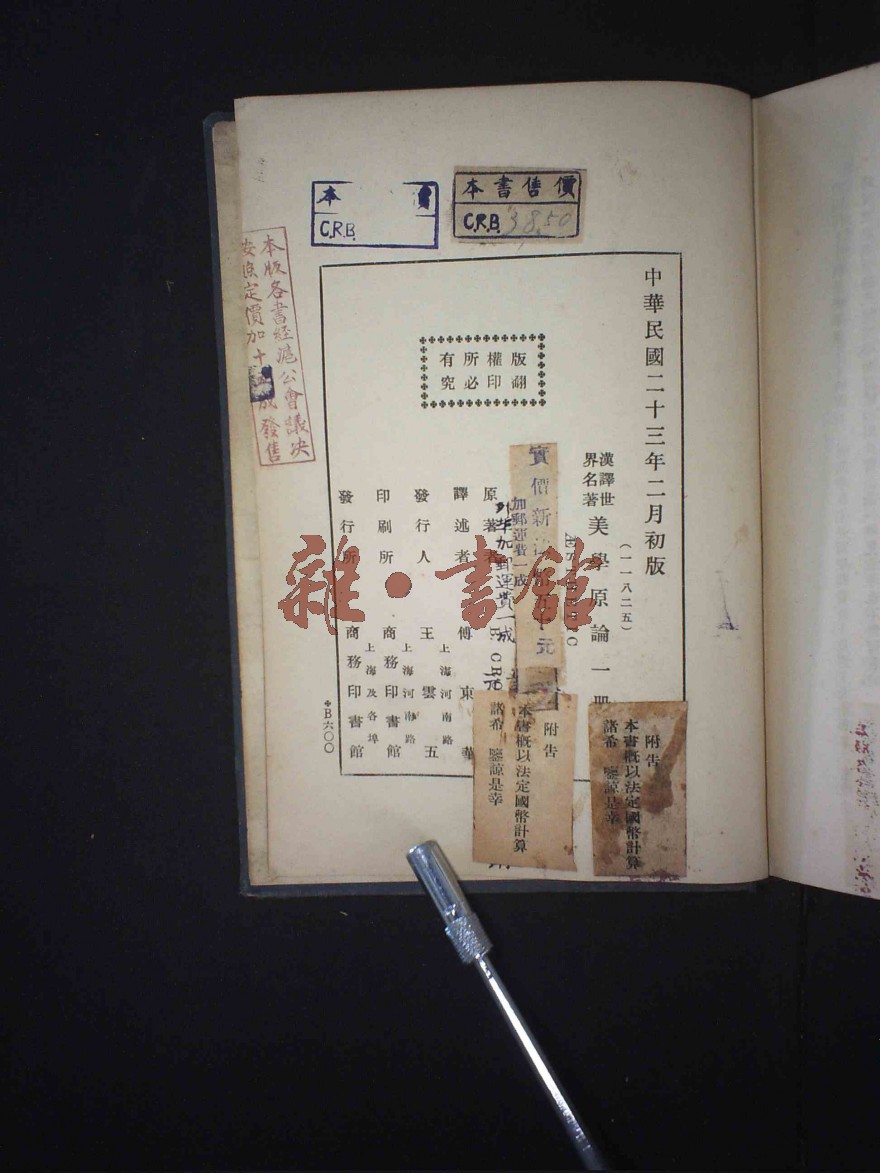 本 價
C.R.B.
本書售價
C.R.B. 38.50
本版各書經滬公會議决
定價加十 成發售
中華民國二十三年二月初版
版權所有
翻印必究
(一一八二五)
漢譯世
界名著
美學原論一册
實價新 元
加郵運費一成
外埠加郵運費一成
原著
譯述者 傅東華
發行人 王雲五
上海河南路
印刷所 商務印書館
上海河南路
發行所 商務印書館
上海及各埠
B六〇〇
附告
本書概以法定國幣計算
諸希 鑒諒是幸
附告
本書概以法定國幣計算
諸希 鑒諒是幸
雜·書館